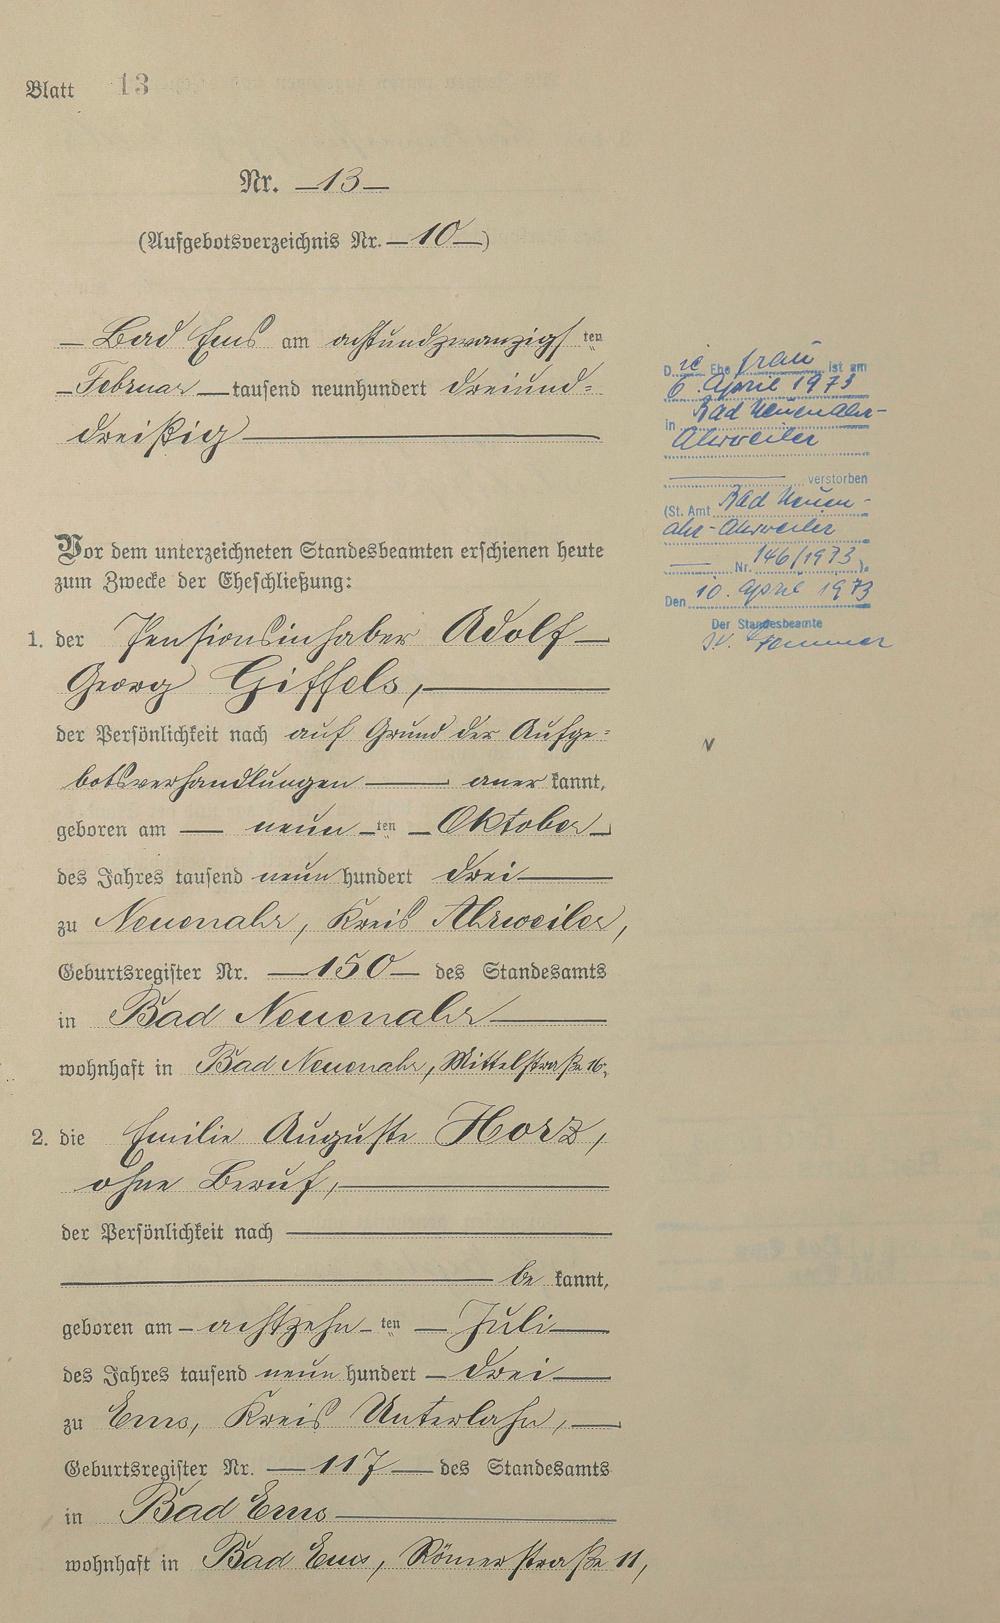 Blatt 13
Nr. 13
(Aufgebotsverzeichnis Nr. 10)
Bad Ems am achtundzwanzigsten
Februar tausend neunhundert dreiund=
dreißig
Vor dem unterzeichneten Standesbeamten erschienen heute
zum Zwecke der Eheschließung:
1. der Pensionsinhaber Adolf
Georg Giffels,
der Persönlichkeit nach auf Grund der Aufge=
botsverhandlungen anerkannt,
geboren am neunten Oktober
des Jahres tausend neunhundert drei
zu Neuenahr, Kreis Ahrweiler,
Geburtsregister Nr. 150 des Standesamts
in Bad Neuenahr
wohnhaft in Bad Neuenahr, Mittelstraße 16,
2. die Emilie Auguste Horz,
ohne Beruf,
der Persönlichkeit nach
bekannt,
geboren am achtzehnten Juli
des Jahres tausend neunhundert drei
zu Ems, Kreis Unterlahn,
Geburtsregister Nr. 117 des Standesamts
in Bad Ems
wohnhaft in Bad Ems, Römerstraße 11,
Die Ehefrau ist am
6. April 1973
in Bad Neuenahr-
Ahrweiler
verstorben
(St. Amt Bad Neuen-
ahr-Ahrweiler
Nr. 146/1973).
Den 10. April 1973
Der Standesbeamte